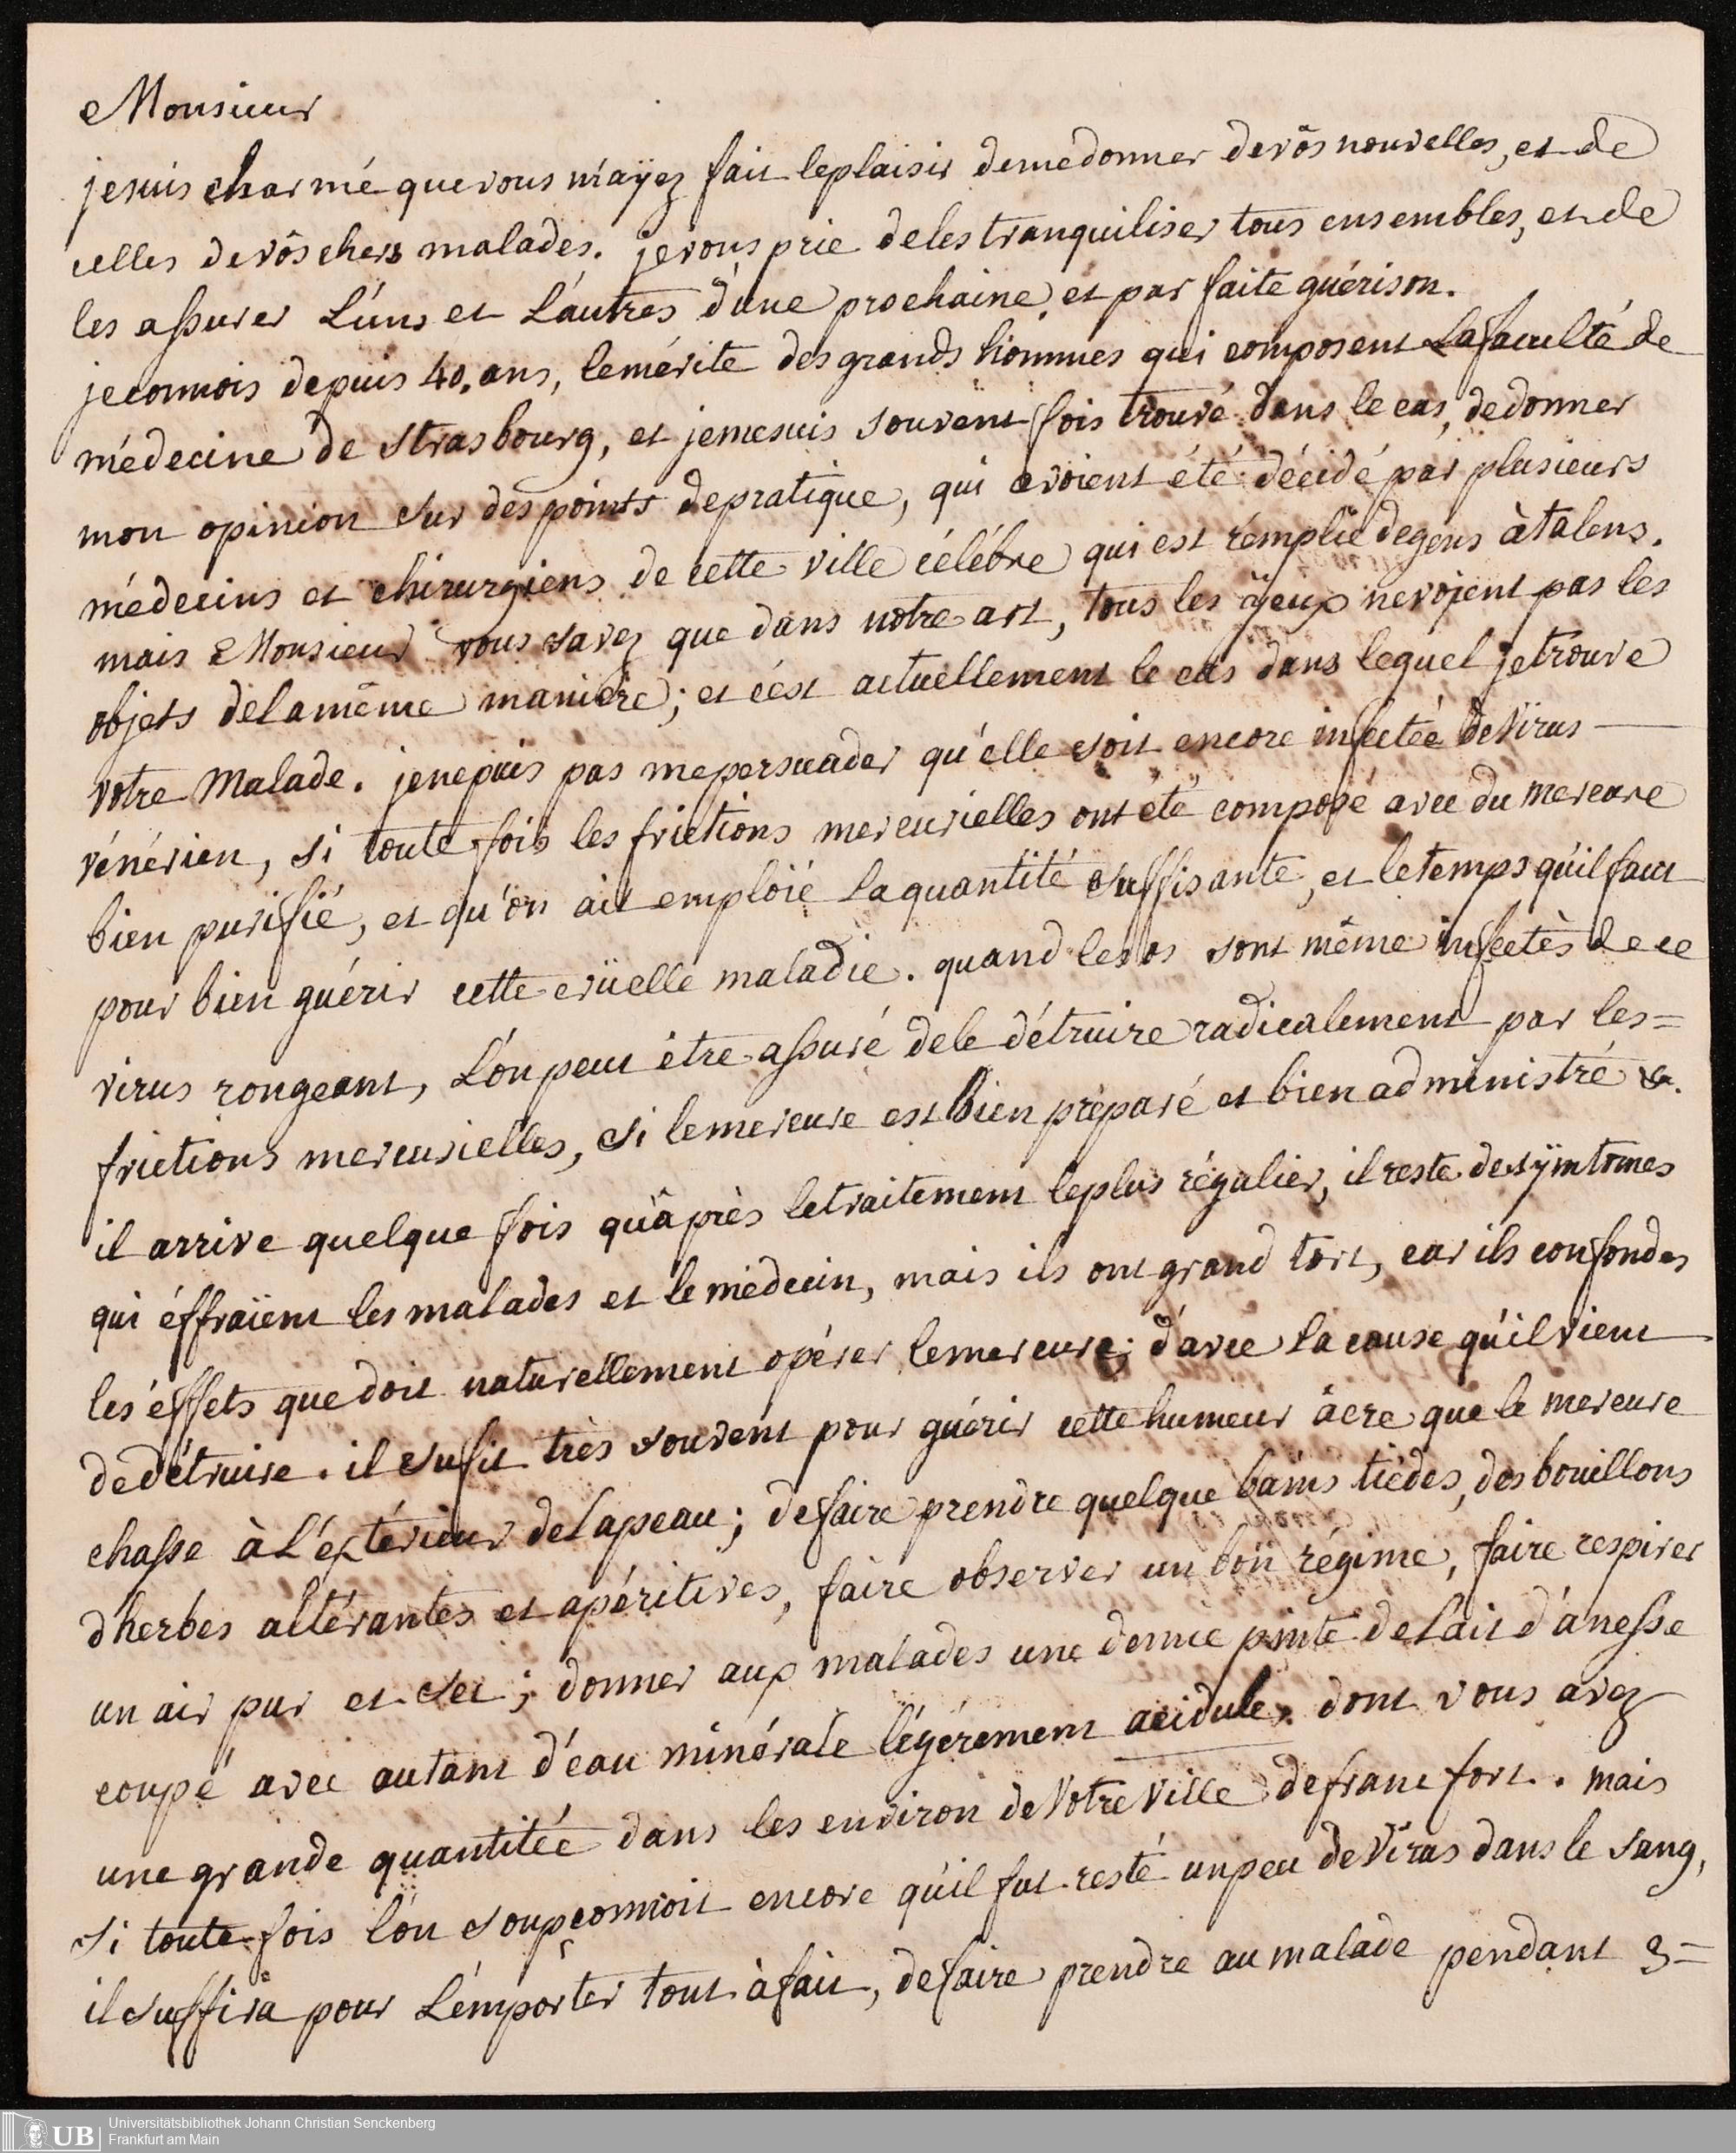 Monsieur
je suis charmé que vous m'aÿez fait le plaisir de me donner de vôs nouvelles, et de
celles de vôs chers malades. je vous prie de les tranquiliser tous ensembles, et de
les assurer L'uns et L'autres d'une prochaine et parfaite guérison.
je connois depuis 40. ans, le mérite des grands hommes qui composent La faculté de
médecine de Strasbourg, et je me suis souvent fois trouvé dans le cas, de donner
mon opinion sur des points de pratique, qui avoient été décidé par plusieurs
médecins et chirurgiens de cette ville célébre qui est remplie de gens à talens.
mais Monsieur vous savez que dans notre art, tous les ÿeux ne voÿent pas les
objets de la même maniére; et c'est actuellement le cas dans lequel je trouve
votre Malade. je ne puis pas me persuader qu'elle soit encore infectée de Virus
vénérien, si toute fois les frictions mercurielles ont été composé avec du mercure
bien purifié, et qu'on ait emploïé La quantité suffisante, et le temps qu'il faut
pour bien guérir cette crüelle maladie. quand les os sont même infectès de ce
virus rongeant, L'on peut être assuré de le détruire radicalement par les=
frictions mercurielles, si le mercure est bien préparé et bien administré &.
il arrive quelque fois qu'après le traitement le plus régulier, il reste de sÿmtomes
qui éffraïent les malades et le médecin, mais ils ont grand tort, car ils confondes
les éffets que doit naturellement opérer le mercure; d'avec la cause qu'il vient
de détruire. il sufit très souvent pour guérir cette humeur âcre que le mercure
chasse à L'éxtérieur de La peau; de faire prendre quelque bains tiédes, des bouillons
d'herbes altérantes et apéritives, faire observer un bon régime, faire respirer
un air pur et sec; donner aux malades une demie pinte de Lait d'anesse
coupé avec autant d'éau minérale légérement acidule, dont vous avez
une grande quantitée dans les environ de Votre Ville de francfort. mais
si toute fois l'on soupçonnoit encore qu'il fut resté un peu de Virus dans le sang,
il suffira pour L'emporter tout à fait, de faire prendre au malade pendant 3=
Universitätsbibliothek Johann Christian Senckenberg
Frankfurt am Main
UB